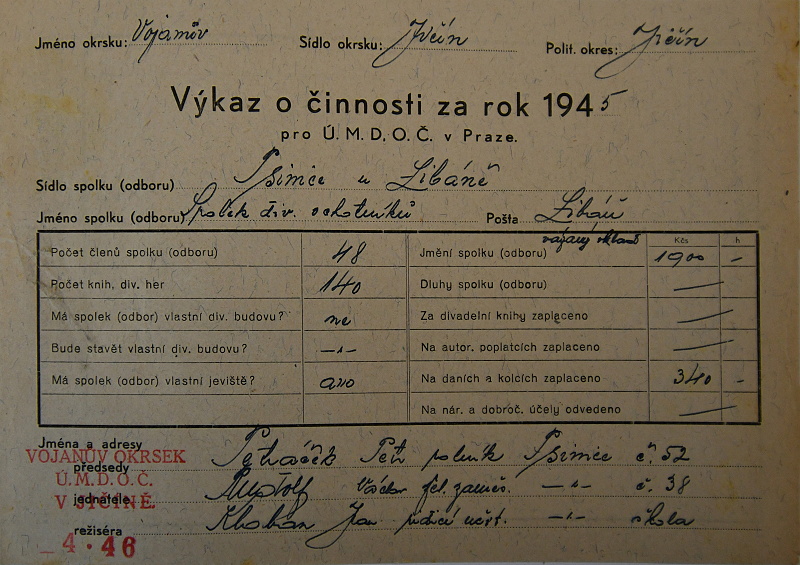 Jméno okrsku: Vojanův Sídlo okrsku: Jičín Polit. okres: Jičín
Výkaz o činnosti za rok 1945
pro Ú. M. D. O. Č. v Praze.
Sídlo spolku (odboru) Psinice u Libáně
Jméno spolku (odboru) Spolek div. ochotníků Pošta Libáň
Kčs h
Počet členů spolku (odboru) 48 Jmění spolku (odboru) vázaný vklad 1900 –
Počet knih, div. her 140 Dluhy spolku (odboru) —
Má spolek (odbor) vlastní div. budovu? ne Za divadelní knihy zaplaceno —
Bude stavět vlastní div. budovu? –„– Na autor. poplatcích zaplaceno —
Má spolek (odbor) vlastní jeviště? ano Na daních a kolcích zaplaceno 340 –
Na nár. a dobroč. účely odvedeno —
Jména a adresy
předsedy Petráček Petr rolník Psinice č. 52
jednatele Václav zaměs. –„– č. 38
režiséra Jan řídící učit. –„– škola
VOJANŮV OKRSEK
Ú.M.D.O.Č.
V JIČÍNĚ.
4 · 46